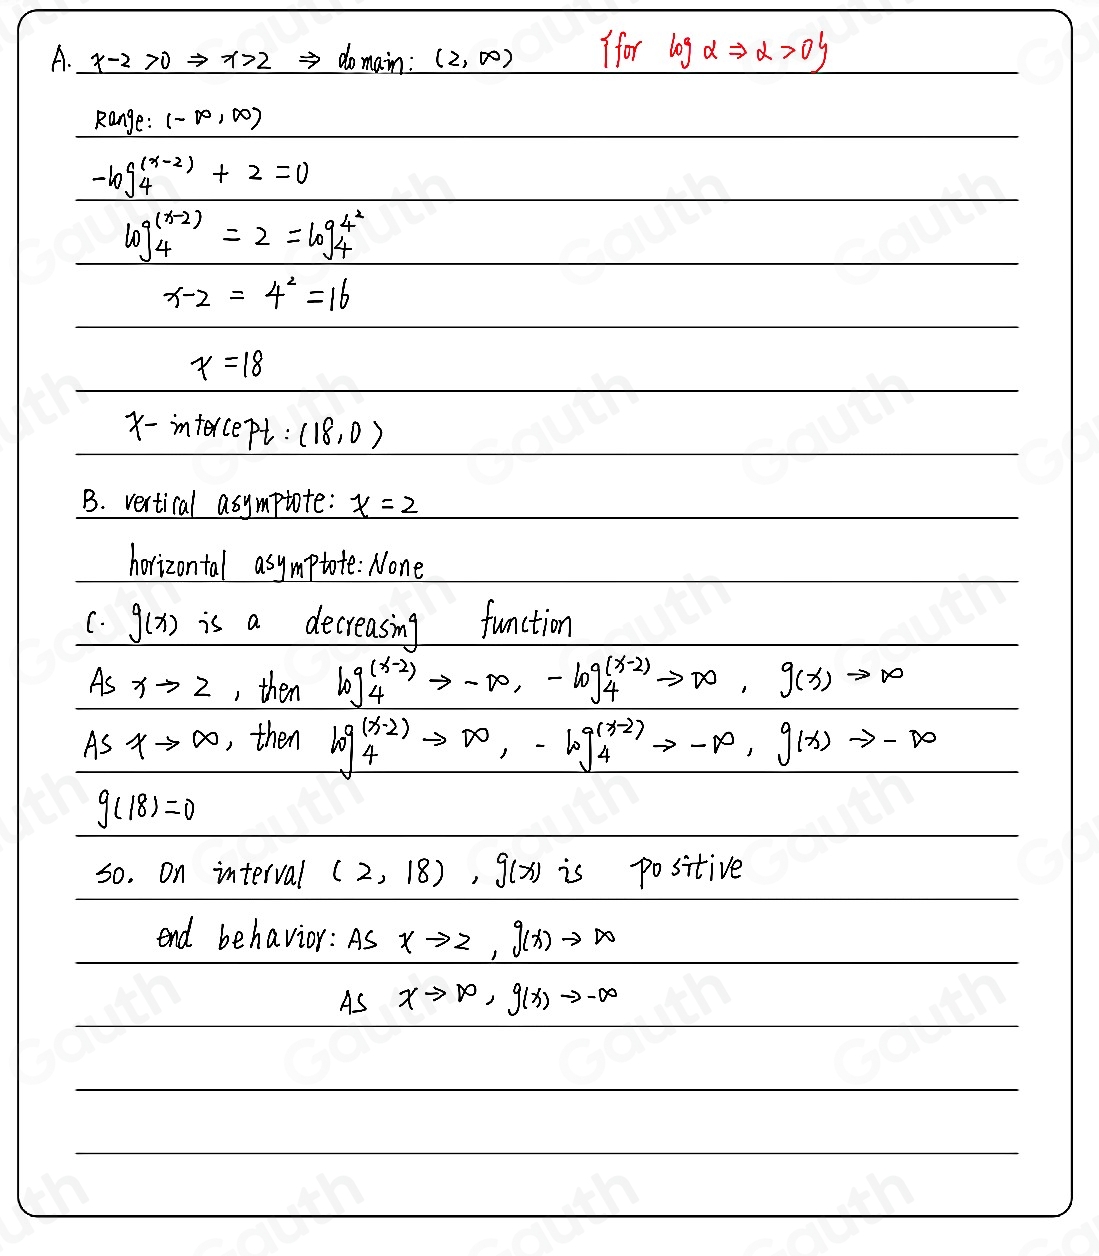 A. x-2>0 ⇒ x>2 ⇒ domain: (2, ∞) {for log α ⇒ α>0}
Range: (-∞, ∞)
-log₄^(x-2) + 2 = 0
log₄^(x-2) = 2 = log₄^4²
x-2 = 4² = 16
x = 18
x-intercept: (18, 0)
B. vertical asymptote: x = 2
horizontal asymptote: None
C. g(x) is a decreasing function
As x → 2, then log₄^(x-2) → -∞, -log₄^(x-2) → ∞, g(x) → ∞
As x → ∞, then log₄^(x-2) → ∞, -log₄^(x-2) → -∞, g(x) → -∞
g(18)=0
so. On interval (2, 18), g(x) is positive
end behavior: As x → 2, g(x) → ∞
As x → ∞, g(x) → -∞
Gauth